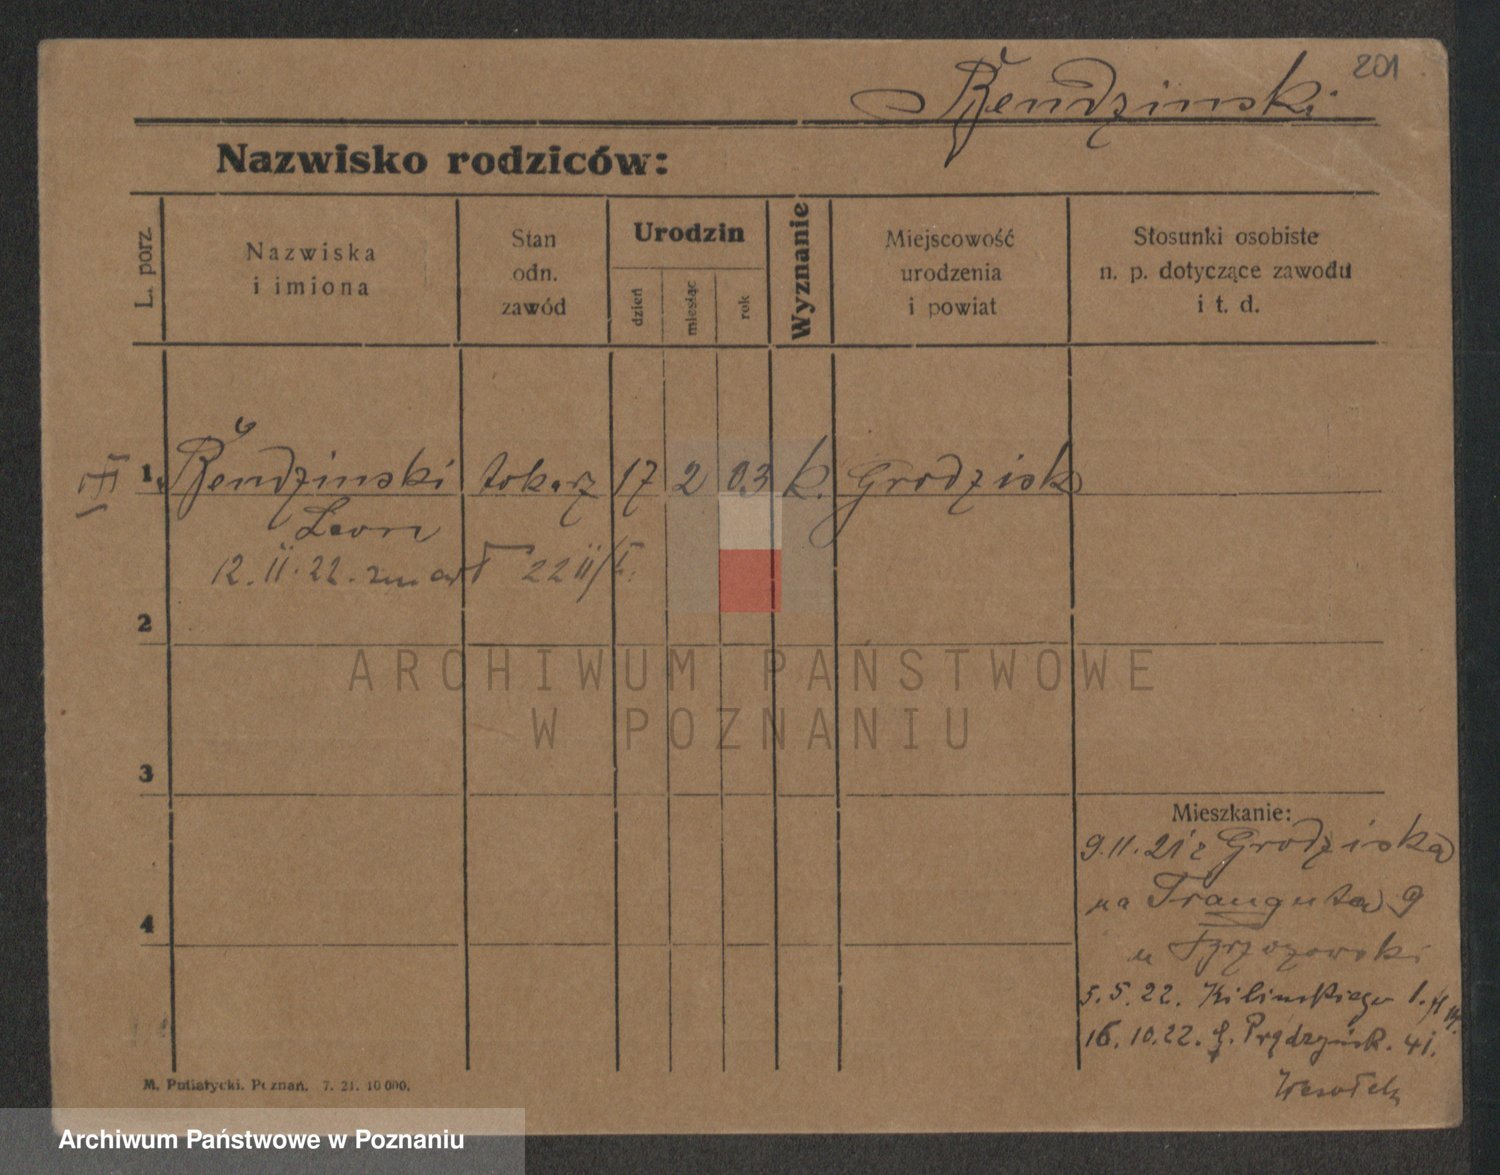 201
Bendzinski
Nazwisko rodziców:
L. porz.
Nazwiska
i imiona
Stan
odn.
zawód
Urodzin
dzień
miesiąc
rok
Wyznanie
Miejscowość
urodzenia
i powiat
Stosunki osobiste
n. p. dotyczące zawodu
i t. d.
III 1. Bendzinski tokarz 17 2 03 k. Grodzisk
Leon
12. II. 22. zmarł 22 II/
2
ARCHIWUM PAŃSTWOWE
W POZNANIU
3
Mieszkanie:
9.11.21 z Grodziska
na Trauguta 9
u
4
5.5.22. Kilinskiego 1.
16.10.22. Prądzyńsk. 41.
M. Putiatycki. Poznań. 7. 21. 10000.
Archiwum Państwowe w Poznaniu